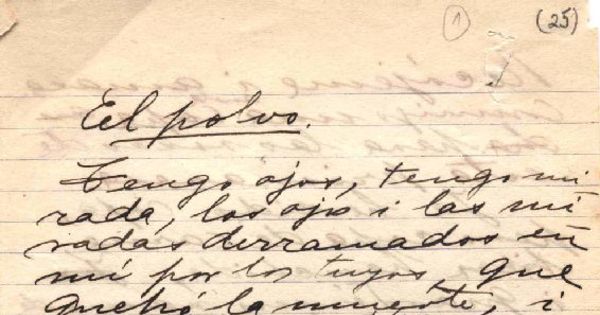 1 (25)
El polvo.
Tengo ojos, tengo mi
rada, los ojo i las mi
radas derramados en
mí por los tuyos, que
quebró la muerte, i